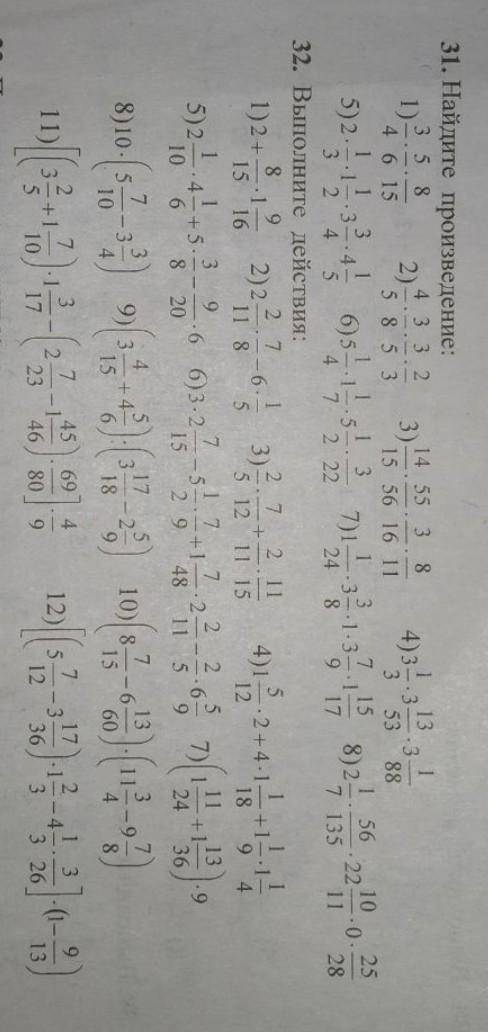 31. Найдите произведение:
1) 3/4 · 5/6 · 8/15 2) 4/5 · 3/8 · 3/5 · 2/3 3) 14/15 · 55/56 · 3/16 · 8/11 4) 3 1/3 · 3 13/53 · 3 1/88
5) 2 · 1/3 · 1 1/2 · 3 3/4 · 4 1/5 6) 5 1/4 · 1 1/7 · 5 1/2 · 3/22 7) 1 1/24 · 3 3/8 · 1 · 3 7/9 · 1 15/17 8) 2 1/7 · 56/135 · 22 10/11 · 0 · 25/28
32. Выполните действия:
1) 2 + 8/15 · 1 9/16 2) 2 2/11 · 7/8 − 6 · 1/5 3) 2/5 · 7/12 + 2/11 · 11/15 4) 1 5/12 · 2 + 4 · 1 1/18 + 1 1/9 · 1 1/4
5) 2 1/10 · 4 1/6 + 5 · 3/8 − 9/20 · 6 6) 3 · 2 7/15 − 5 1/2 · 7/9 + 1 7/48 · 2 2/11 − 2/5 · 6 5/9 7) (1 11/24 + 1 13/36) · 9
8) 10 · (5 7/10 − 3 3/4) 9) (3 4/15 + 4 5/6) : (3 17/18 − 2 5/9) 10) (8 7/15 − 6 13/60) · (11 3/4 − 9 7/8)
11) [(3 2/5 + 1 7/10) · 1 3/17 − (2 7/23 − 1 45/46) · 69/80] · 4/9 12) [(5 7/12 − 3 17/36) · 1 2/3 − 4 1/3 · 3/26] · (1 − 9/13)